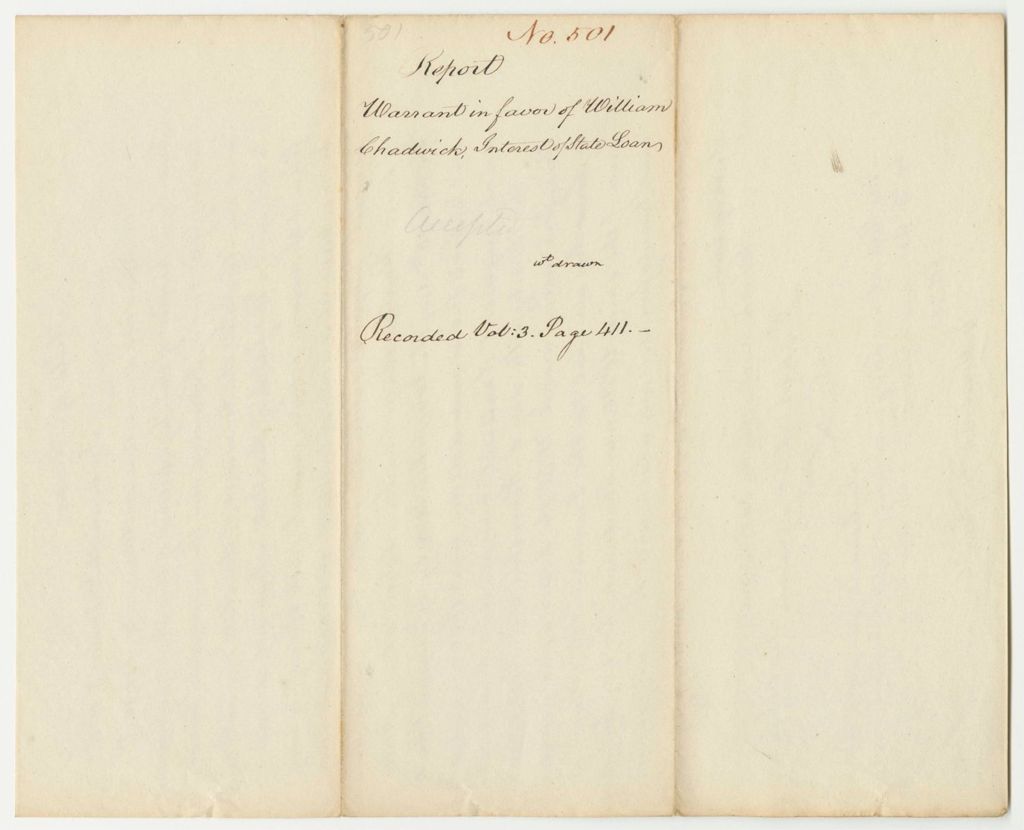 501
No. 501
Report
Warrant in favor of William
Chadwick, Interest of State Loan,
Accepted
wt drawn
Recorded Vol: 3. Page 411. –